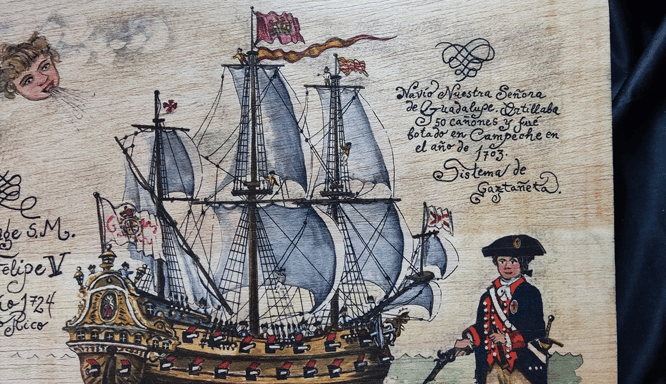 Navío Nuestra Señora
de Guadalupe. Artillaba
50 cañones y fué
botado en Campeche en
el año de
1703.
Sistema de
Gaztañeta.
S.M.
Felipe V
1724
Rico